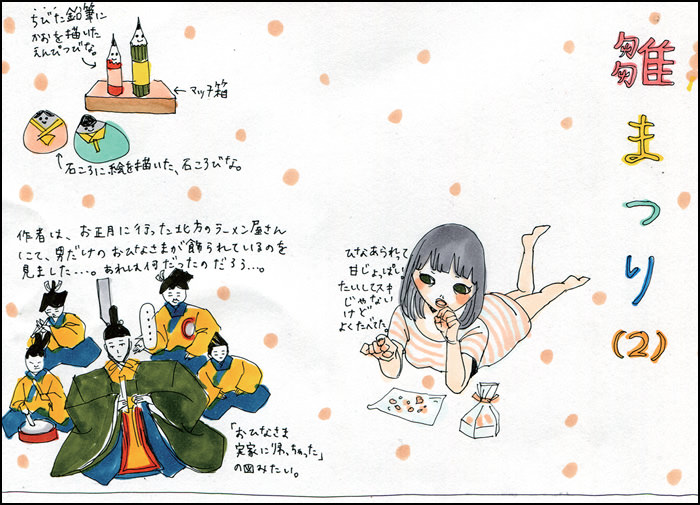 雛まつり(2)
ちびた鉛筆に
かおを描いた
えんぴつびな。
マッチ箱
石ころに絵を描いた、石ころびな。
作者は、お正月に行った北方のラーメン屋さん
にて、男だけのおひなさまが飾られているのを
見ました…。あれは何だったのだろう…。
「おひなさま
実家に帰っちゃった」
の図みたい。
ひなあられって
甘じょっぱい。
たいしてスキ
じゃない
けど
よくたべてた。